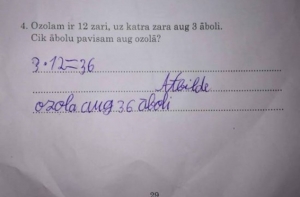 4. Ozolam ir 12 zari, uz katra zara aug 3 āboli.
Cik ābolu pavisam aug ozolā?
3·12=36
Atbilde
ozola aug 36 āboli
29